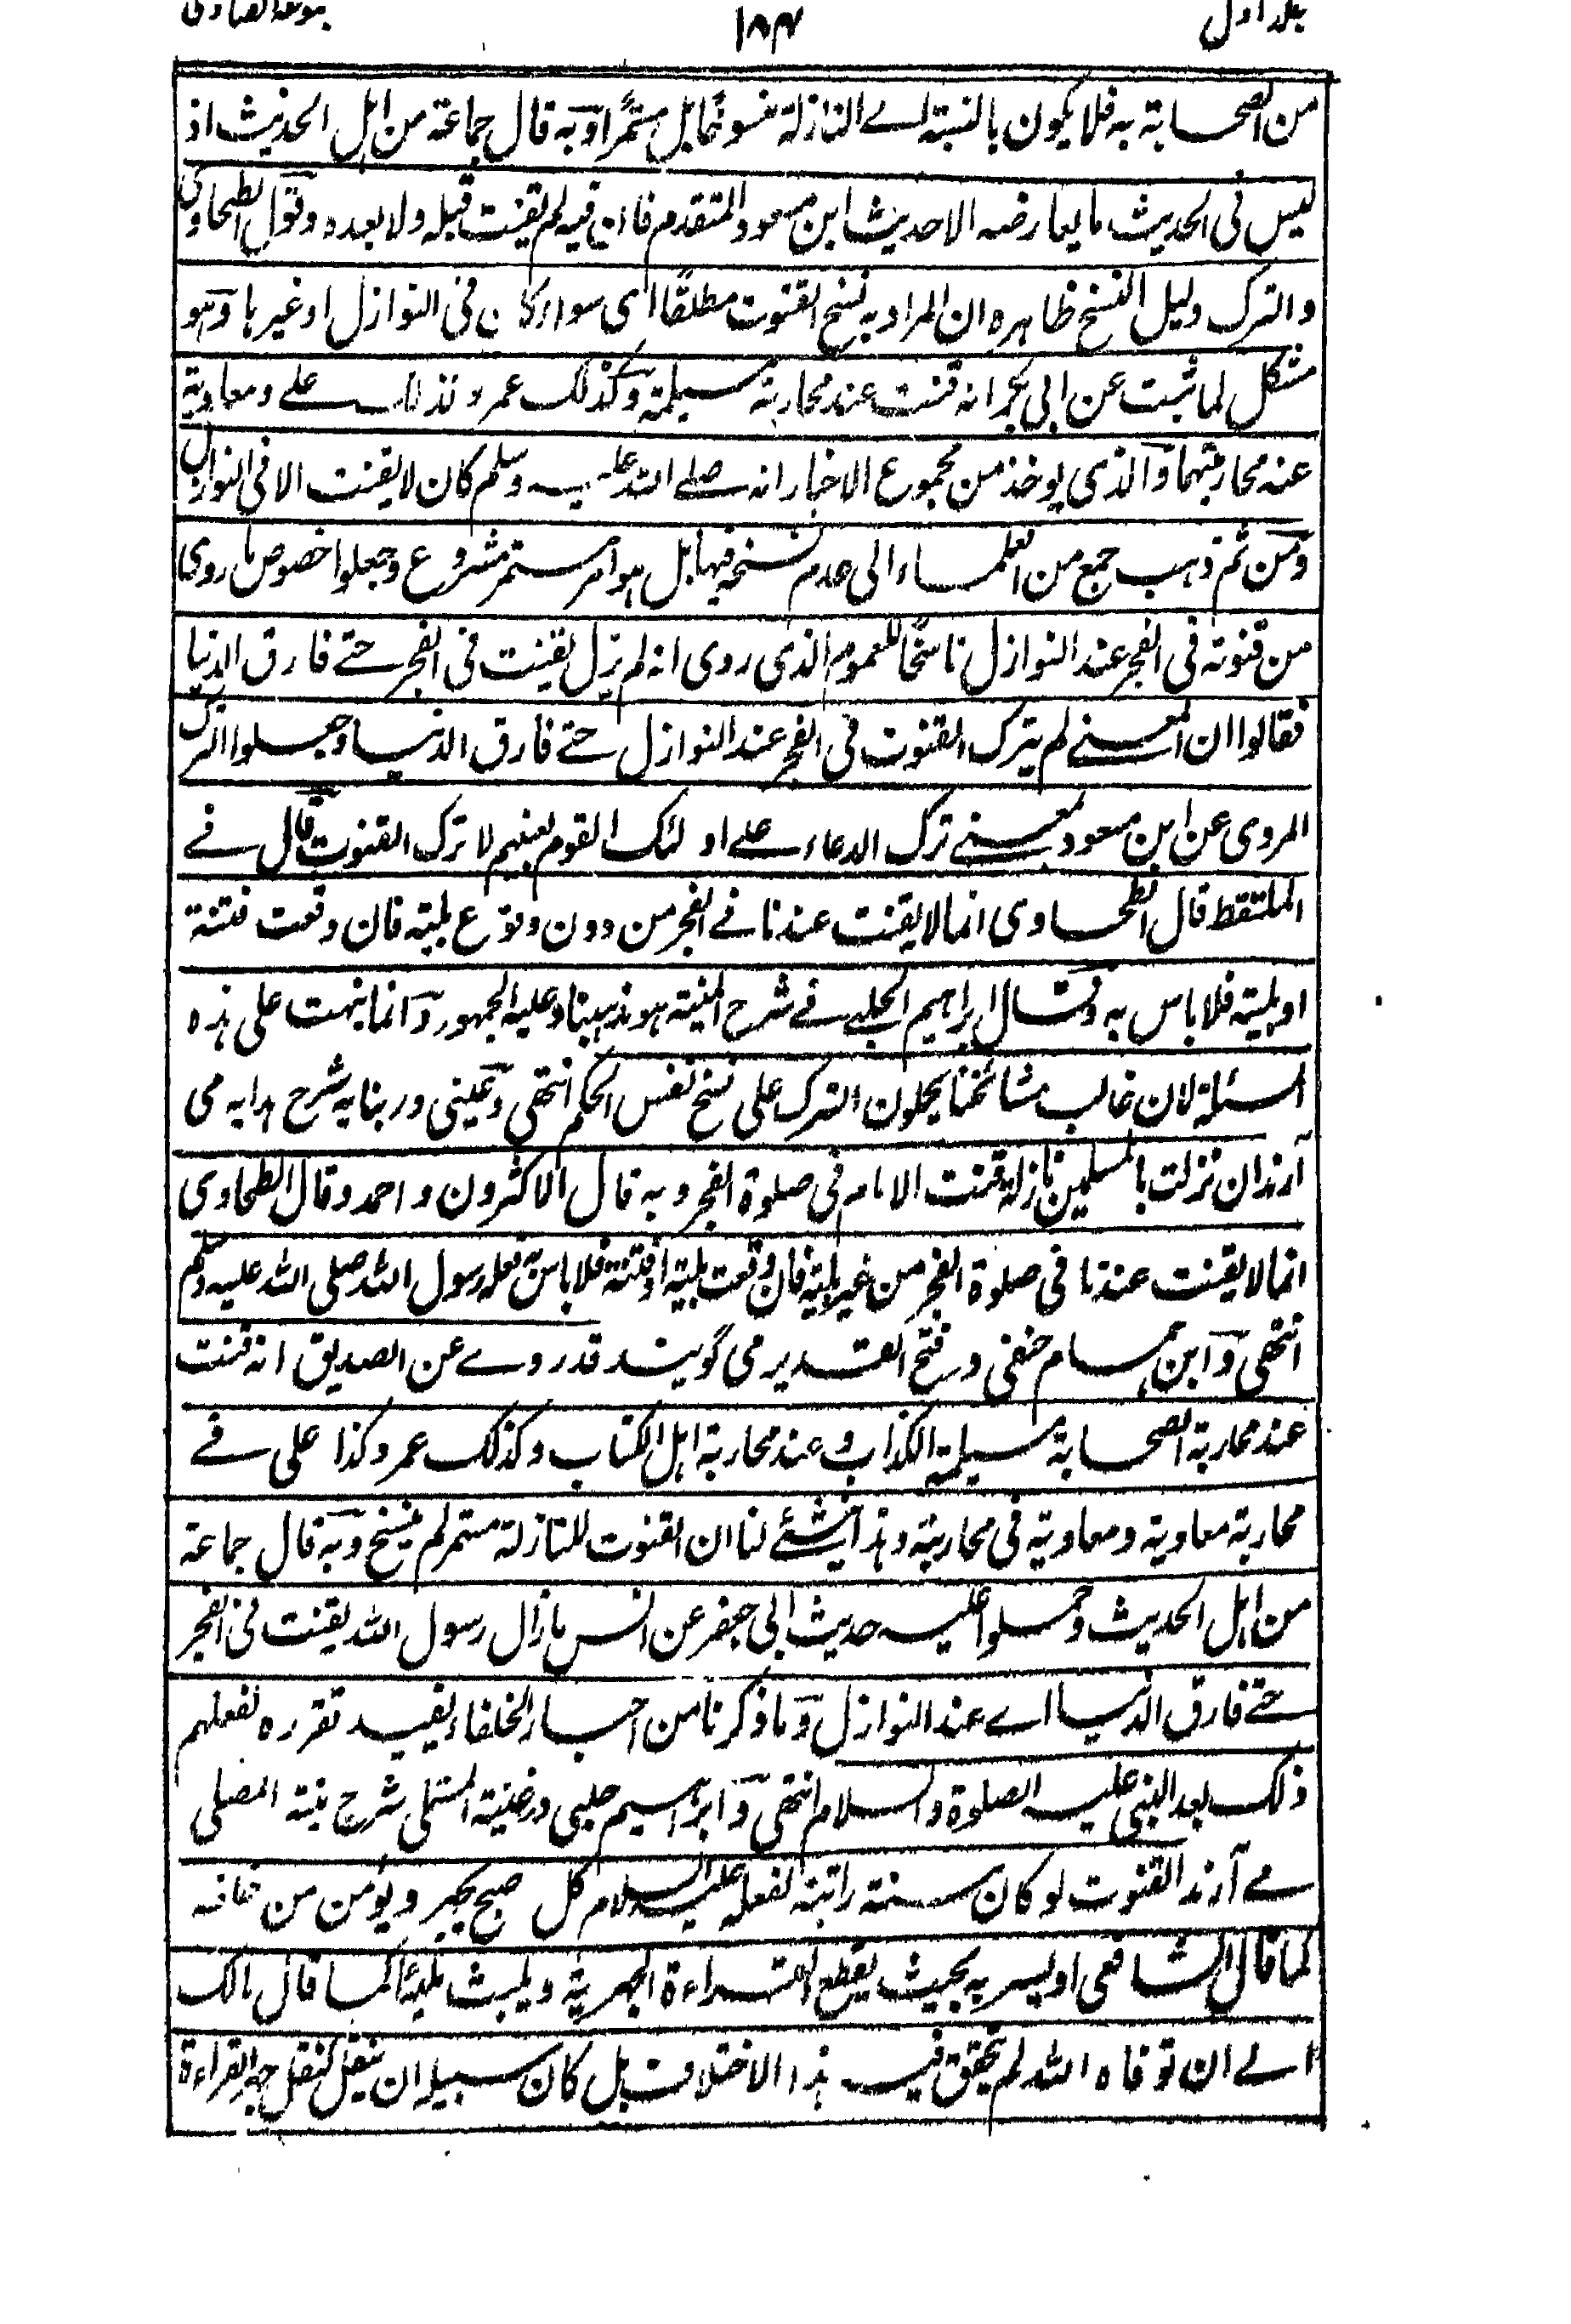 جلد اول ۱۸۴ مجموعۃ الفتاوی
من الصحابۃ بہ فلا یکون بالنسبۃ لے النازلۃ منسوخًا بل مستمًرا وبہ قال جماعۃ من اہل الحدیث اذ
لیس فی الحدیث ما یعارضہ الا حدیث ابن مسعود المتقدم فان فیہ لم یقنت قبلہ ولا بعدہ وقول الطحاوی
والترک دلیل النسخ ظاہرہ ان المراد بہ نسخ القنوت مطلقًا ای سواء کان فی النوازل او غیرہا وہو
مشکل لما ثبت عن ابی بکر انہ قنت عند محاربۃ مسیلمۃ وکذلک عمر وکذلک علے ومعاویۃ
عند محاربتہما والذی یوخذ من مجموع الاخبار انہ صلے اللہ علیہ وسلم کان لا یقنت الا فی النوازل
ومن ثم ذہب جمع من العلماء الی عدم نسخہ فیہا بل ہو امر مستمر مشروع وجعلوا خصوص ما روی
من قنوتہ فی الفجر عند النوازل ناسخًا للعموم الذی روی انہ لم یزل یقنت فی الفجر حتے فارق الدنیا
فقالوا ان المعنے لم یترک القنوت فی الفجر عند النوازل حتے فارق الدنیا وجعلوا الترک
المروی عن ابن مسعود بمعنے ترک الدعاء علے اولئک القوم بعینہم لا ترک القنوت قال فے
الملتقط قال الطحاوی انما لا یقنت عندنا فے الفجر من دون وقوع بلیۃ فان وقعت فتنۃ
او بلیۃ فلا باس بہ وقال ابراہیم الحلبے فے شرح المنیۃ ہو مذہبنا وعلیہ الجمہور وانما نبہت علی ہذہ
المسئلۃ لان غالب مشائخنا یحملون الترک علی نسخ نفس الحکم انتہی وعینی در بنایہ شرح ہدایہ می
آرند ان نزلت بالمسلمین نازلۃ قنت الامام فی صلوۃ الفجر وبہ قال الاکثرون واحمد وقال الطحاوی
انما لا یقنت عندنا فی صلوۃ الفجر من غیر بلیۃ فان وقعت بلیۃ او فتنۃ فلا باس بہ فعلہ رسول اللہ صلی اللہ علیہ وسلم
انتہی وابن ہمام حنفی در فتح القدیر می گویند قد روے عن الصدیق انہ قنت
عند محاربۃ الصحابۃ مسیلمۃ الکذاب وعند محاربۃ اہل الکتاب وکذلک عمر وکذا علی فے
محاربۃ معاویۃ ومعاویۃ فی محاربتہ وہذا ینشئے لنا ان القنوت للنازلۃ مستمر لم ینسخ وبہ قال جماعۃ
من اہل الحدیث وحملوا علیہ حدیث ابی جعفر عن انس ما زال رسول اللہ یقنت فی الفجر
حتے فارق الدنیا اے عند النوازل وما ذکرنا من اخبار الخلفاء یفید تقررہ لفعلہم
ذلک بعد النبی علیہ الصلوۃ والسلام انتہی وابراہیم حلبی در غنیۃ المستملی شرح منیۃ المصلی
مے آرند القنوت لو کان سنۃ راتبۃ لفعلہ علیہ السلام کل صبح یجہر ویؤمن من خلفہ
کما قال الشافعی او یسر بہ بحیث یقطع القراءۃ الجہریۃ ویلبث ملیًا کما قال مالک
الے ان توفاہ اللہ لم یتحقق فیہ ہذا الاختلاف بل کان سبیلہ ان ینقل کنقل جہر القراءۃ